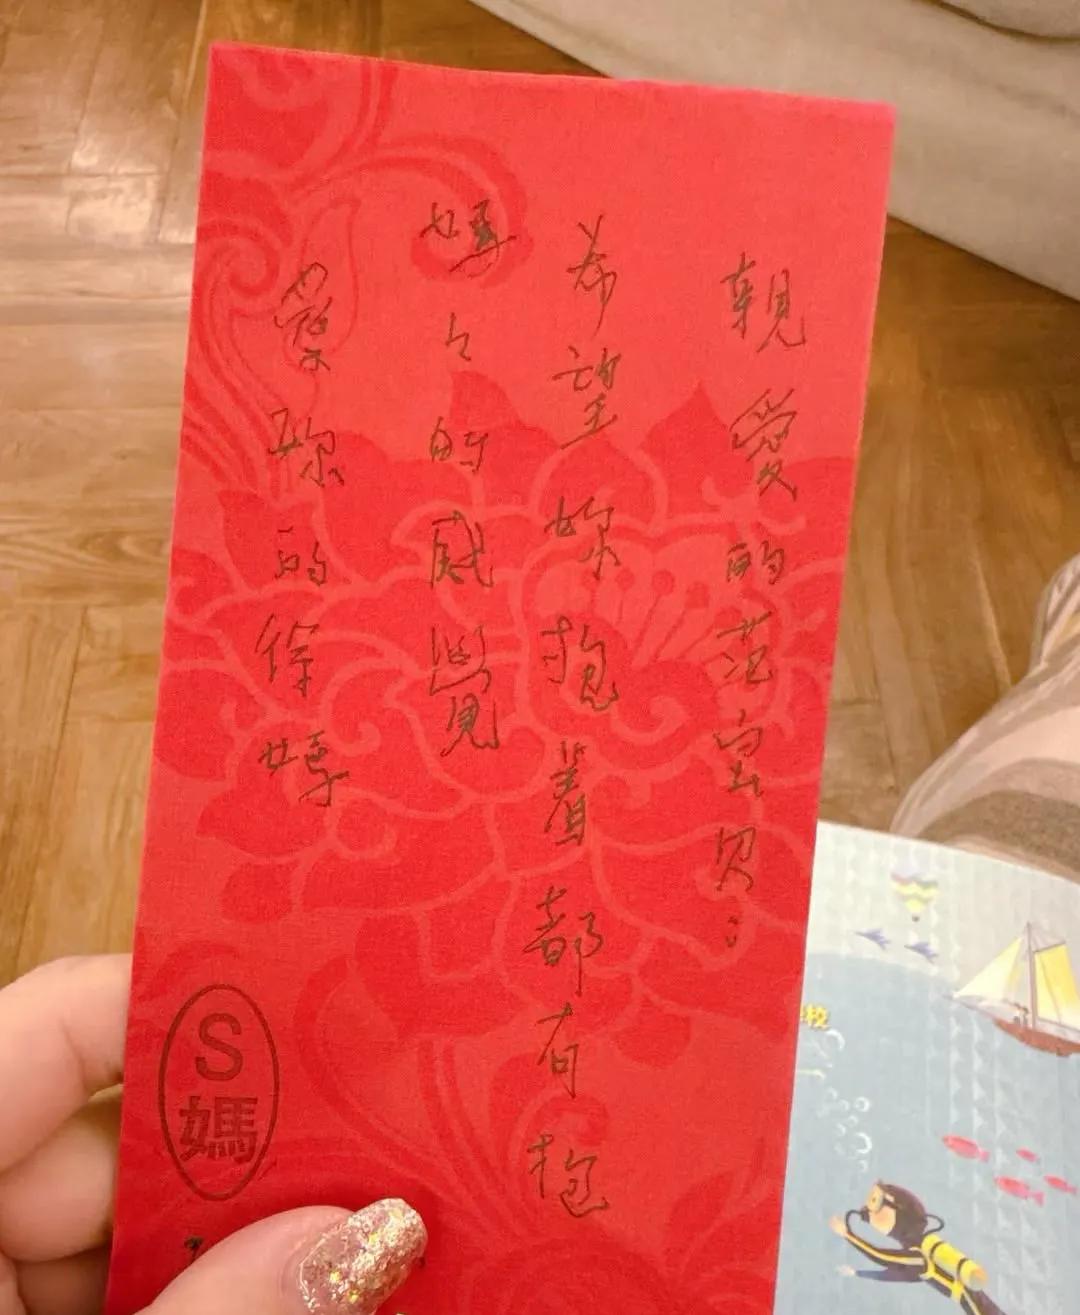 親愛的范宝贝：
希望妳抱着都有抱
媽々的感覺
愛妳的徐媽
S
媽
校